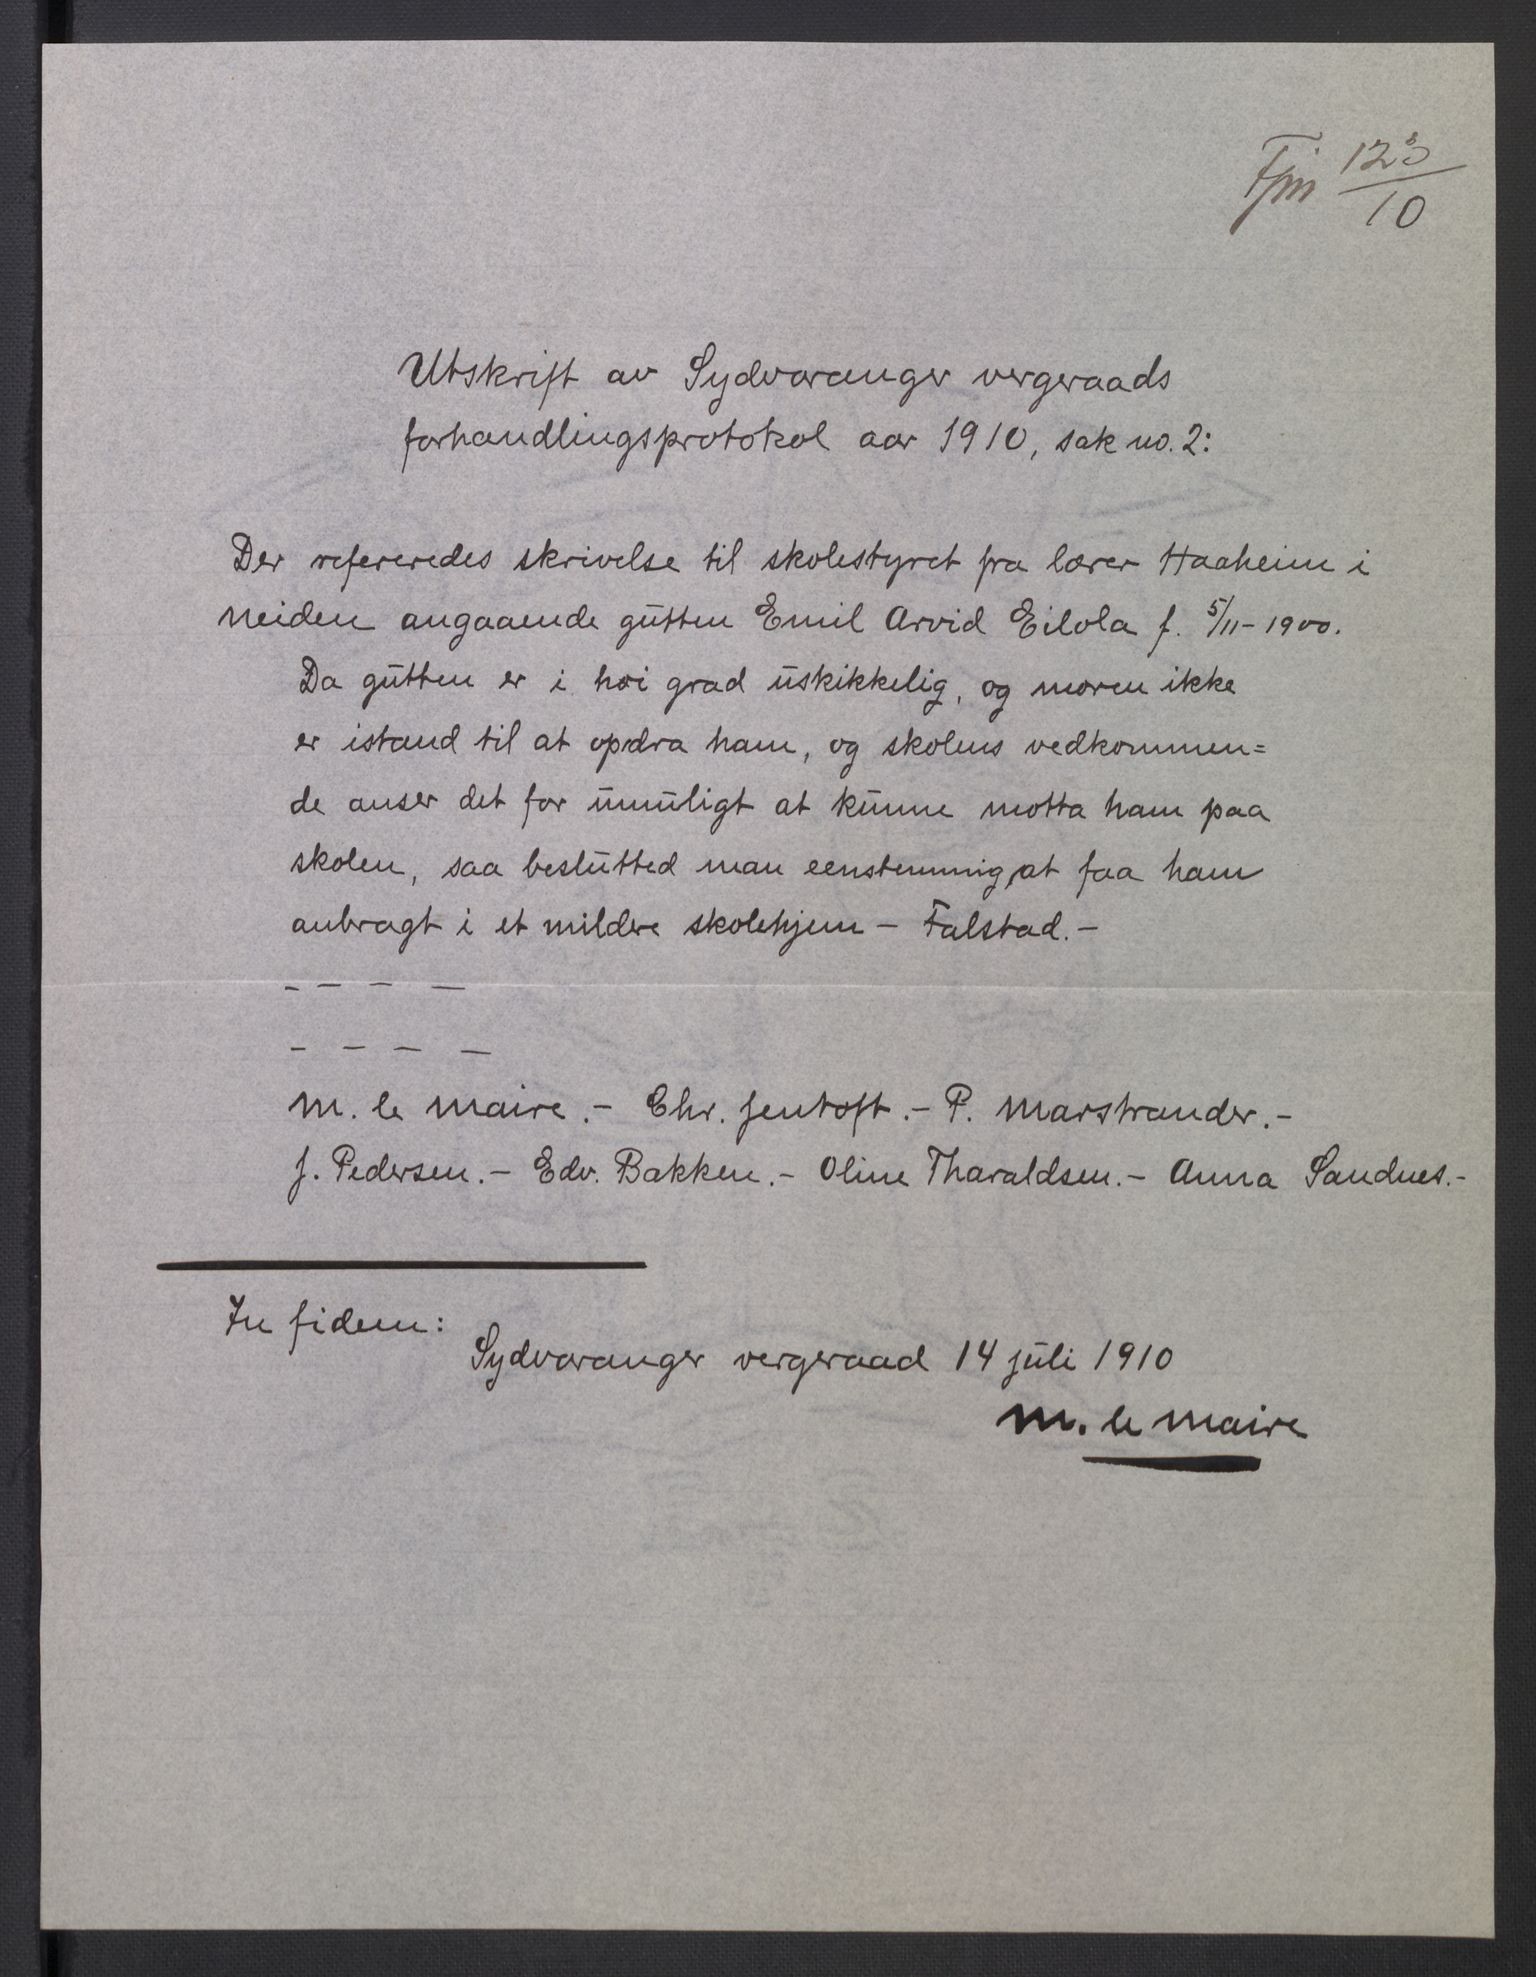 123
10
Utskrift av Sydvaranger vergeraads
forhandlingsprotokol aar 1910, sak no. 2:
Der refereredes skrivelse til skolestyret fra lærer Haaheim i
Neiden angaaende gutten Emil Arvid Eilola f. 5/11-1900.
Da gutten er i høi grad uskikkelig, og moren ikke
er istand til at opdra ham, og skolens vedkommen=
de anser det for umuligt at kunne motta ham paa
skolen, saa beslutted man eenstemmig, at faa ham
anbragt i et mildere skolehjem - Falstad. -
- - - -
- - - -
M. le Maire. - Chr. Jentoft. - P. Marstrander. -
J. Pedersen. - Edv. Bakken. - Oline Tharaldsen. - Anna Sandnes. -
In fidem:
Sydvaranger vergeraad 14 juli 1910
M. le Maire